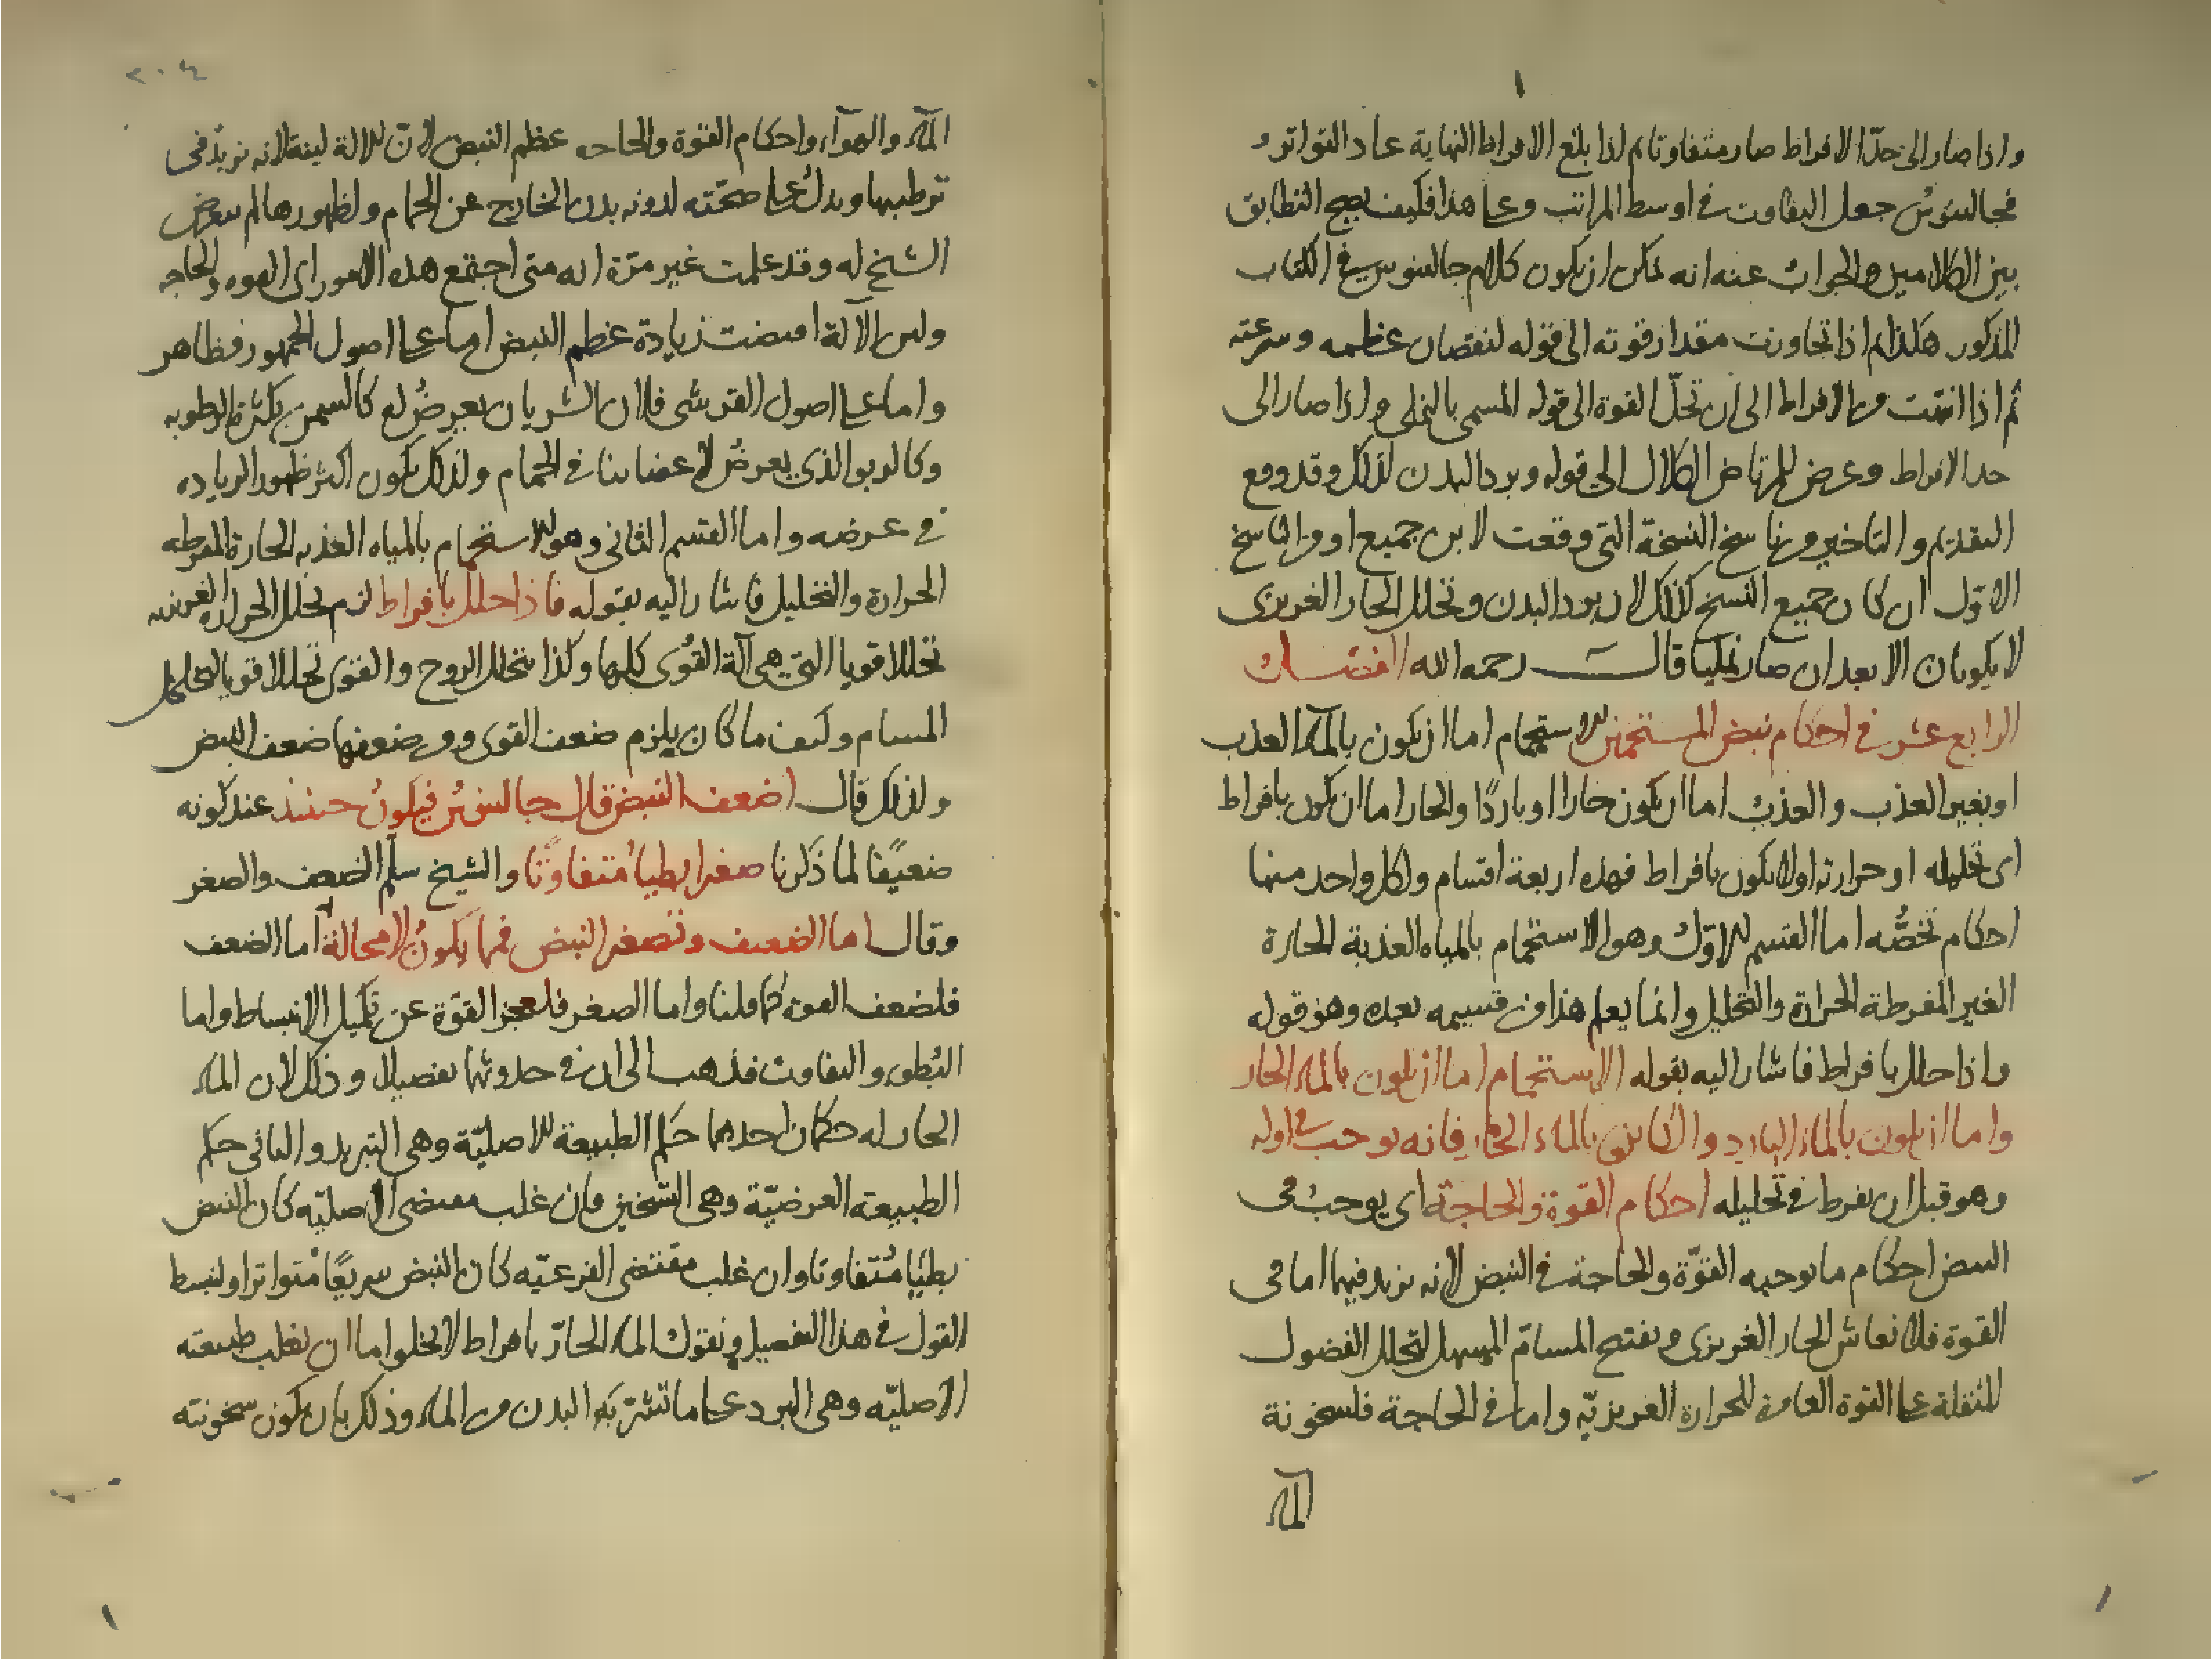 واذا صار الى حدّ الافراط صار متفاوتا ثم اذا بلغ الافراط النهاية عاد التواتر
فجالينوس جعل التفاوت في اوسط المراتب وعلى هذا فكيف يصح التطابق
بين الكلامين والجواب عنه انه يمكن ان يكون كلام جالينوس في الكتاب
المذكور هكذا ثم اذا تجاوزت مقدار قوته الى قوله لنقصان عظمه وسرعته
ثم اذا انتهت من الافراط الى ان تحلّ القوة الى قوله المسمى بالنملى واذا صار الى
حد الافراط وعرض للمرتاض الكلال الى قوله وبرد البدن لذلك وقد وقع
التقديم والتاخير من ناسخ النسخة التي وقعت لابن جميع او من الناسخ
الاوّل ان كان جميع النسخ كذلك لان برد البدن وتحلل الحار الغريزى
لا يكونان الا بعد ان صار نمليا قال رحمه الله الفصل
الرابع عشر في احكام نبض المستحمين الاستحمام اما ان يكون بالمآء العذب
او بغير العذب والعذب اما ان يكون حارا او باردًا والحار اما ان يكون بافراط
اى تحليله او حرارته او لا يكون بافراط فهذه اربعة اقسام ولكل واحد منها
احكام تخصُّه اما القسم الاوّل وهو الاستحمام بالمياه العذبة الحارة
الغير المفرطة الحرارة والتحليل وانما يعلم هذا من قسيمه بعده وهو قوله
واذا حلل بافراط فاشار اليه بقوله الاستحمام اما ان يكون بالماء الحار
واما ان يكون بالماء البارد والكائن بالماء الحار فانه يوجب في اوله
وهو قبل ان يفرط في تحليله احكام القوة والحاجة اى يوجب في
النبض احكام ما توجبه القوّة والحاجة في النبض لانه يزيد فيهما اما في
القوة فلانعاش الحار الغريزى وبفتح المسامّ المسهل لتحلل الفضول
المثقلة على القوة الغامرة للحرارة الغريزيّة واما في الحاجة فلسخونة
المآء
٢٠٤
المآء والهوآء واحكام القوة والحاجه عظم النبض لانّ الالة لينة لانه يزيد في
ترطيبها ويدلُ على صحّته لدونه بدن الخارج عن الحمام ولظهورها لم يتعرض
الشيخ له وقد علمت غير مرّة انه متى اجتمع هذه الامور اى القوه والحاجه
ولين الآلة اقتضت زيادة عظم النبض اما على اصول الجمهور فظاهر
واما على اصول القرشى فلان الشريان يعرضُ له كالسمن بكثرة الرطوبه
وكالربو الذي يعرضُ لاعضائنا في الحمام ولذلك يكون اكثر ظهور الزياده
في عرضه واما القسم الثانى وهو الاستحمام بالمياه العذبه الحارة المفرطه
الحرارة والتحليل فاشار اليه بقوله فاذا حلل بافراط لزم تحلل الحرارة الغريزيه
تحللا قويا التي هي آلة القُوى كلها وكذا يتحلل الروح والقوى تحللا قويا لتخلخل
المسام وكيف ما كان يلزم ضعف القوى ومن ضعفها ضعف النبض
ولذلك قال اضعف النبض قال جالينوسُ فيكونُ حينئذ عند كونه
ضعيفًا لما ذكرنا صغيرا بطيا متفاوتًا والشيخ سلّم الضعف والصغر
وقال اما الضعيف وتصغير النبض فما يكونُ لا محالة اما الضعف
فلضعف القوة كما قلنا واما الصغر فلعجز القوّة عن تكميل الانبساط واما
البُطوء والتفاوت فذهب الى ان في حدوثهما تفصيلا وذلك لان الماء
الحار له حكمان احدهما حكم الطبيعة الاصليّة وهى التبريد والثانى حكم
الطبيعة العرضيّة وهى التسخين فان غلب مقتضى الاصليّه كان النبض
بطيًا مُتفاوتا وان غلب مقتضى الفرعيّه كان النبض سريعًا مُتواترا ولنبسط
القول في هذا التفصيل ونقول الماء الحارّ بافراط لا يخلوا اما ان تغلب طبيعته
الاصليّه وهى البرد على ما تشرّبه البدن من الماء وذلك بان يكون سخونته